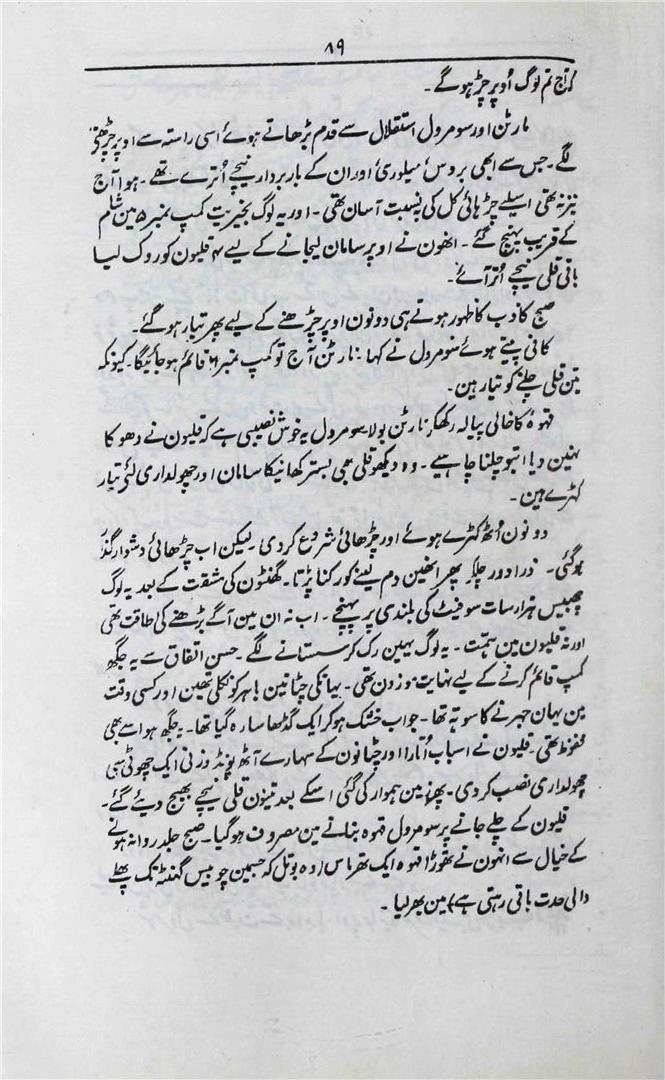 ۸۹
کہ آج تم لوگ اُوپر چڑہوگے۔
مارٹن اور سومرول استقلال سے قدم بڑھاتے ہوئے اسی راستہ سے اوپر چڑھنے
لگے۔ جس سے ابھی بروس میلوری اور ان کے باربردار نیچے اُترے تھے۔ ہوا آج
تیز نہ تھی اسیلے چڑہائی کل کی بہ نسبت آسان تھی۔ اور یہ لوگ بخیریت کمپ نمبر ۵ مین شام
کے قریب پہنچ گئے۔ انھون نے اوپر سامان لیجانے کے لیے ۴ قلیون کو روک لیا
باقی قلی نیچے اُتر آئے۔
صبح کاذب کا ظہور ہوتے ہی دونون اوپر چڑھنے کے لیے پھر تیار ہوگئے۔
کافی پیتے ہوئے سومرول نے کہا: مارٹن آج تو کمپ نمبر ۶ قائم ہوجائیگا۔ کیونکہ
تین قلی چلنے کو تیار ہین۔
قہوہ کا خالی پیالہ رکھکر مارٹن بولا سومرول یہ خوش نصیبی ہے کہ قلیون نے دھوکا
نہین دیا! تبو چلنا چاہیے۔ وہ دیکھو قلی بھی بستر کھانیکا سامان اور چھولداری لئے تیار
کھڑے ہین۔
دونون اُٹھ کھڑے ہوئے اور چڑھائی شروع کردی۔ لیکن اب چڑھائی دشوار گذر
ہوگئی۔ ذرا دور چلکر پھر انھین دم لینے کو رکنا پڑتا۔ گھنٹون کی مشقت کے بعد یہ لوگ
چھبیس ہزار سات سو فیٹ کی بلندی پر پہنچے۔ اب نہ ان مین آگے بڑھنے کی طاقت تھی
اور نہ قلیون مین ہمت۔ یہ لوگ یہین رک کر سستانے لگے۔ حسن اتفاق سے یہ جگہ
کمپ قائم کرنے کے لیے نہایت موزون تھی۔ یہانکی چٹانین باہر کو نکلی تھین اور کسی وقت
مین یہان جھرنے کا سوتہ تھا۔ جو اب خشک ہوکر ایک گڈھا سا رہ گیا تھا۔ یہ جگہ ہوا سے بھی
محفوظ تھی۔ قلیون نے اسباب اُتارا اور چٹانون کے سہارے آٹھ پونڈ وزنی ایک چھوٹی سی
چھولداری نصب کردی۔ پھر زمین ہموار کی گئی اسکے بعد تینون قلی نیچے بھیج دیئے گئے۔
قلیون کے چلے جانے پر سومرول قہوہ بنانے مین مصروف ہوگیا۔ صبح جلد روانہ ہونے
کے خیال سے انہون نے تھوڑا قہوہ ایک تھرماس (وہ بوتل کہ جسمین چوبیس گھنٹہ تک پھٹے
والی حدت باقی رہتی ہے) مین بھر لیا۔